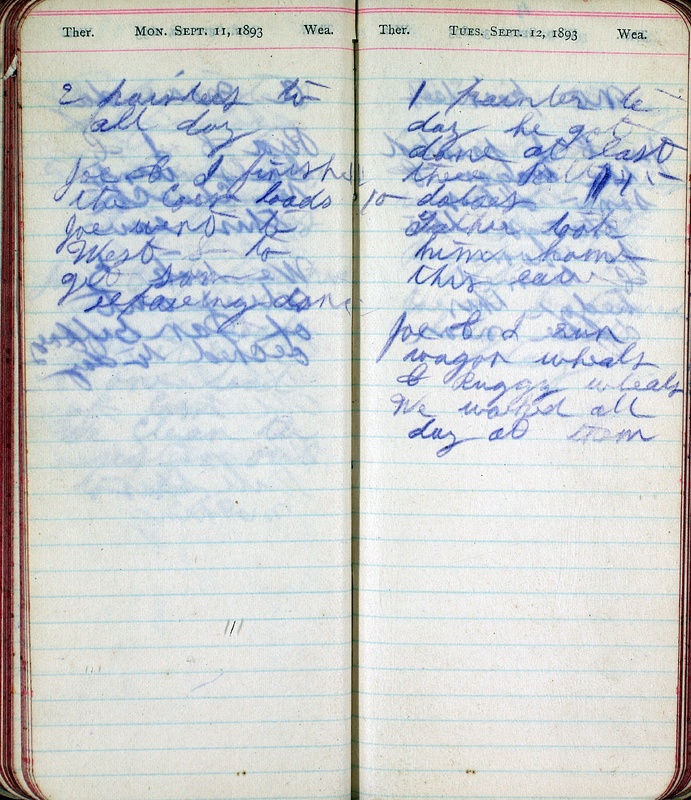 Ther. MON. SEPT. 11, 1893 Wea.
2 painters to
all day
Joe & I finished
the Corn loads
Joe went to
West to
get som
repareing done
Ther. TUES. SEPT. 12, 1893 Wea.
1 painter to
day he got
done at last
there
10 dolars
Father took
him home
this eav
Joe & I run
wagon wheals
& buggy wheals
We worked all
day at them